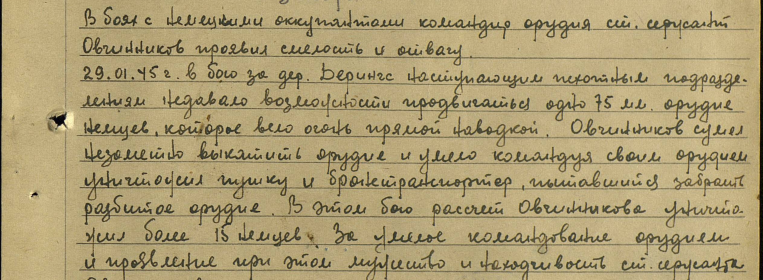 В боях с немецкими оккупантами командир орудия ст. сержант
Овчинников проявил смелость и отвагу.
29.01.45 г. в бою за дер. Берингс наступающим пехотным подразде-
лениям недавало возможности продвигаться одно 75 мм. орудие
немцев, которое вело огонь прямой наводкой. Овчинников сумел
незаметно выкатить орудие и умело командуя своим орудием
уничтожил пушку и бронетранспортер, пытавшийся забрать
разбитое орудие. В этом бою рассчет Овчинникова уничто-
жил более 15 немцев. За умелое командование орудием
и проявление при этом мужество и находчивость ст. сержант